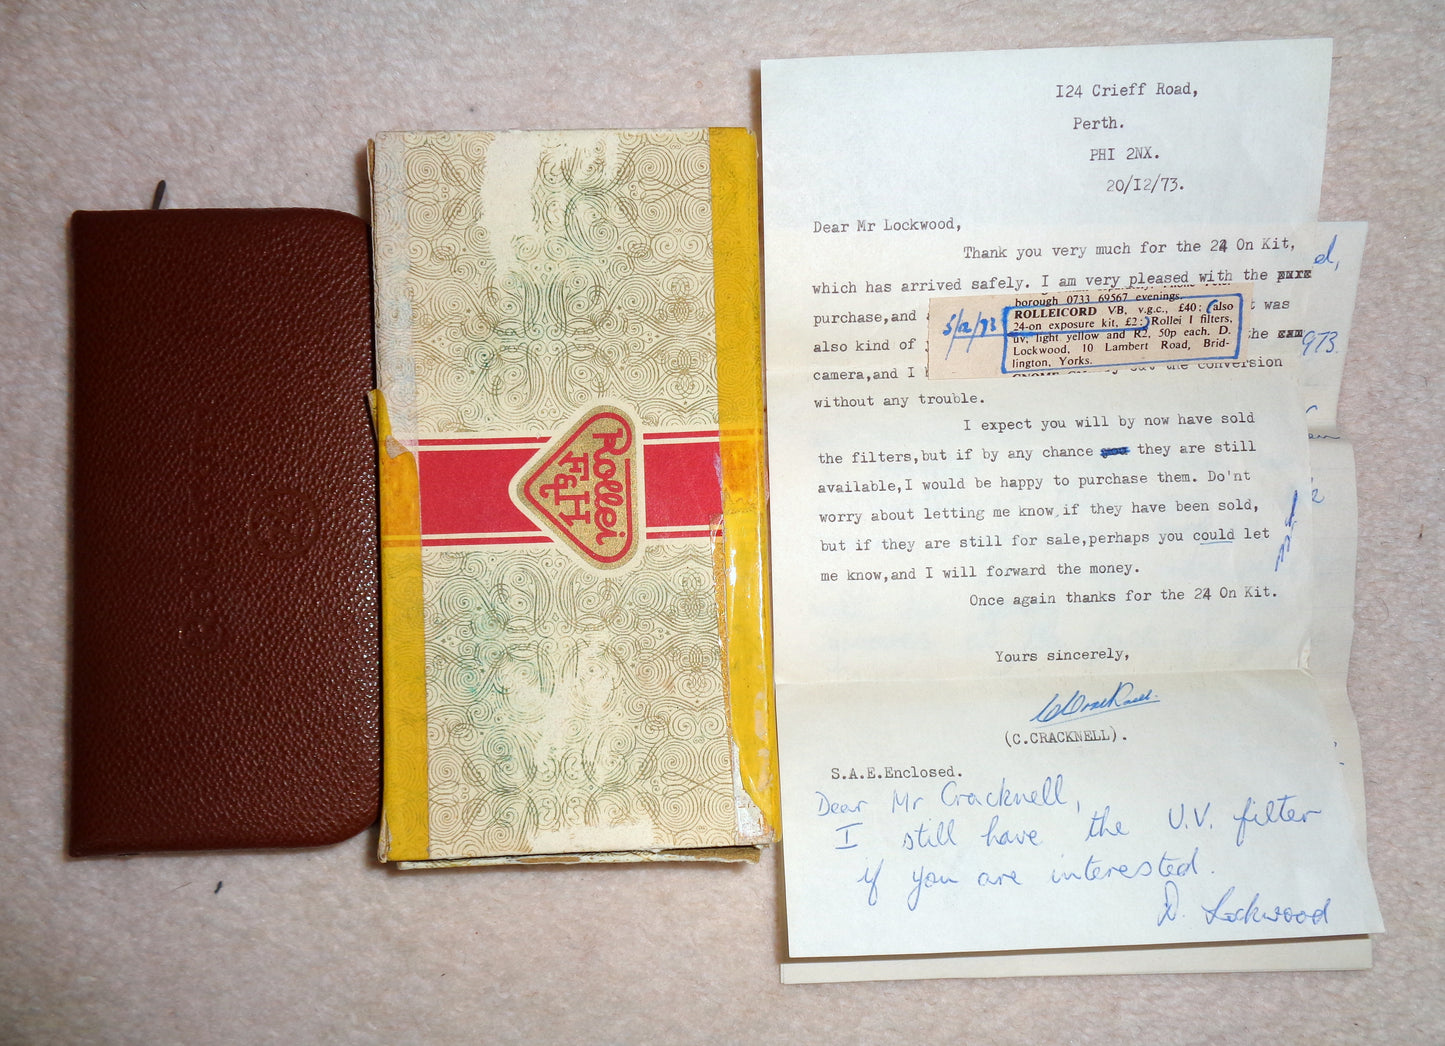 Rollei
F&H
I24 Crieff Road,
Perth.
PHI 2NX.
20/I2/73.
Dear Mr Lockwood,
Thank you very much for the 24 On Kit,
which has arrived safely. I am very pleased with the
purchase,and
was
also kind of
the
camera,and I
the conversion
without any trouble.
borough 0733 69567 evenings.
ROLLEICORD VB, v.g.c., £40; (also
24-on exposure kit, £2;) Rollei I filters,
uv, light yellow and R2, 50p each. D.
Lockwood, 10 Lambert Road, Brid-
lington, Yorks.
5/12/73
I expect you will by now have sold
the filters,but if by any chance they are still
available,I would be happy to purchase them. Do'nt
worry about letting me know,if they have been sold,
but if they are still for sale,perhaps you could let
me know,and I will forward the money.
Once again thanks for the 24 On Kit.
Yours sincerely,
(C.CRACKNELL).
S.A.E.Enclosed.
Dear Mr Cracknell,
I still have the U.V. filter
if you are interested.
D. Lockwood
973